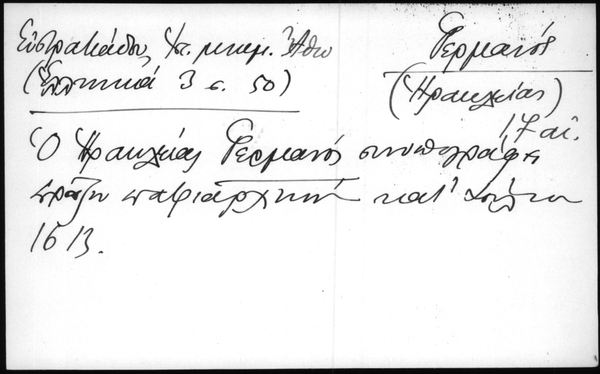 Εὐστρατιάδου, Ἱστ. μνημ. Ἄθω
(Ἑλληνικά 3 σ. 50)
Γερμανός
(Ἡρακλείας)
17 αἰ.
Ὁ Ἡρακλείας Γερμανός συνυπογράφει
πρᾶξιν πατριαρχικήν κατ'
1613.